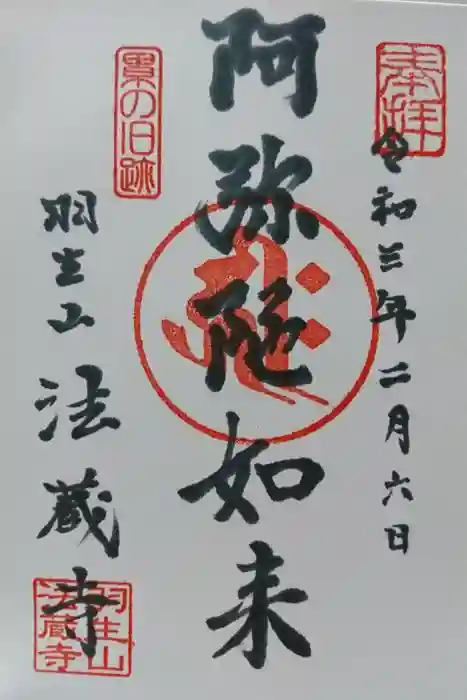 奉拝
令和三年二月六日
阿弥陀如来
累の旧跡
羽生山 法蔵寺
羽生山
法蔵寺